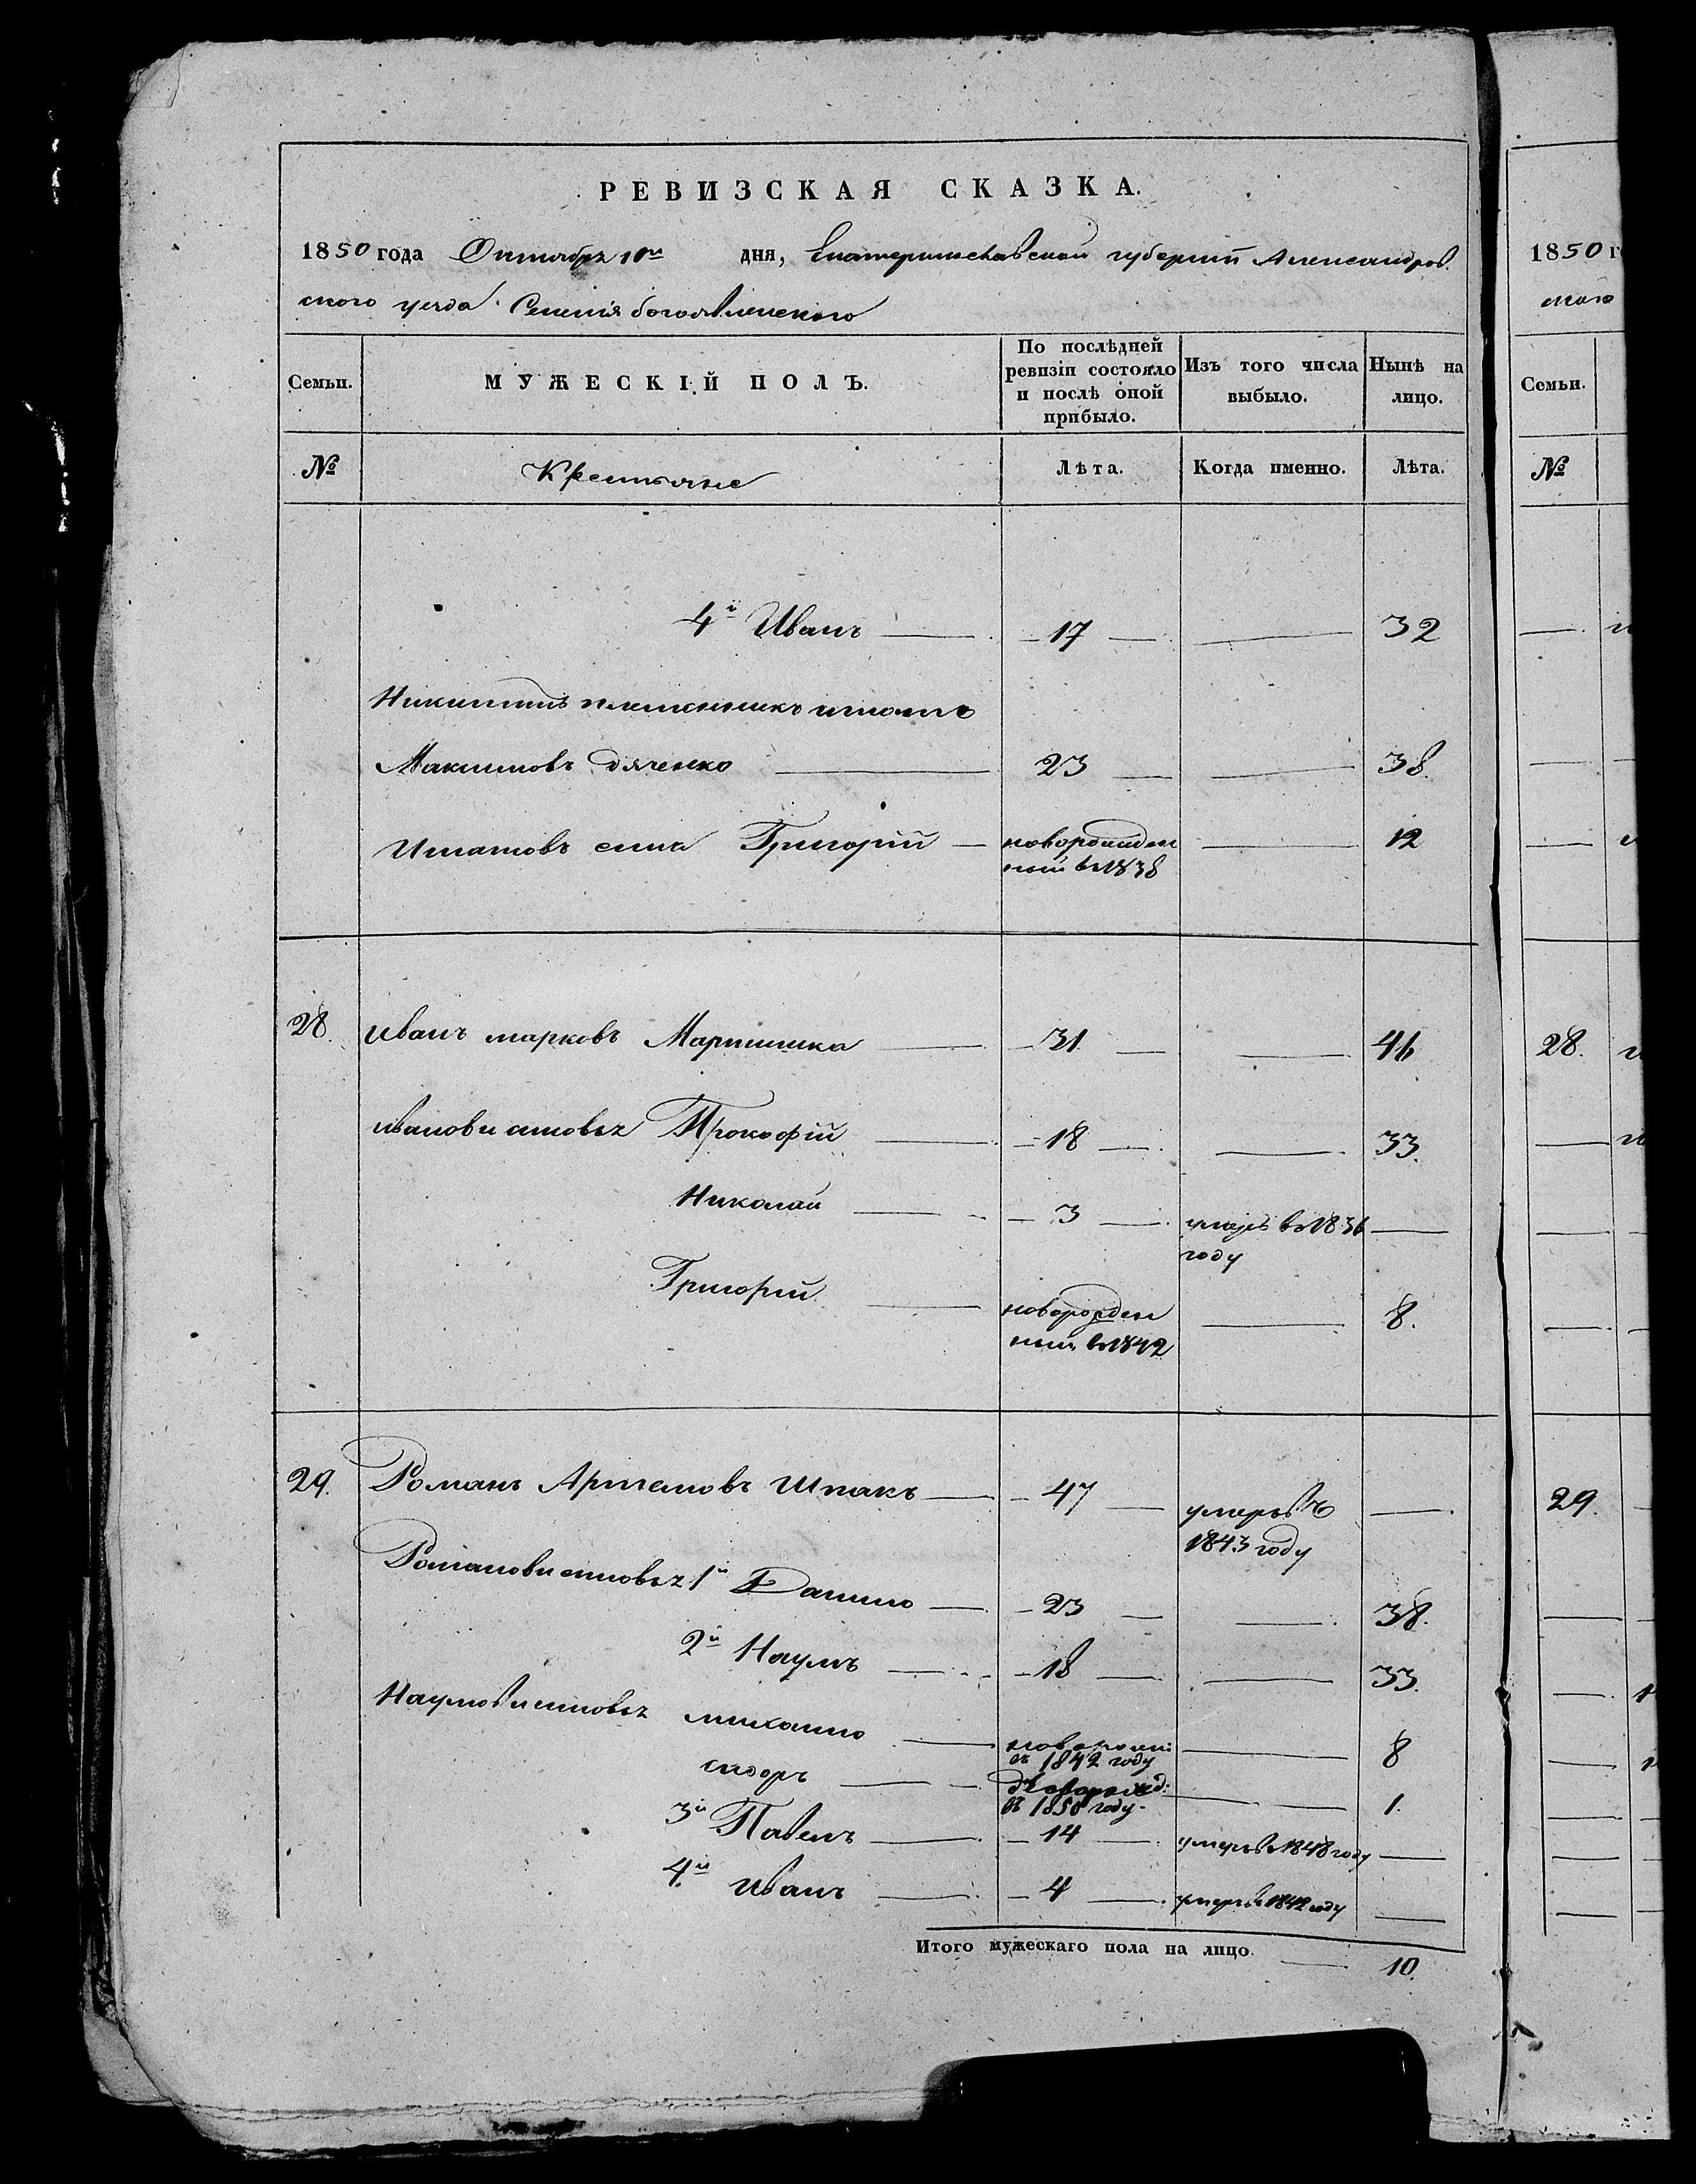 РЕВИЗСКАЯ СКАЗКА.
1850 года Октября 10го дня, Екатеринославской губернiи Александров.
ского уезда Селенiя богоявленского
Семьи.
МУЖЕСКIЙ ПОЛЪ.
По послѣдней ревизiи состояло и послѣ оной прибыло.
Изъ того числа выбыло.
Нынѣ на лицо.
№
Крестьяне
Лѣта.
Когда именно.
Лѣта.
4й Иванъ 17 32
Никитинъ племенникъ игнатъ
Максимовъ дяченко 23 38.
Игнатовъ сынъ Григорiй новорожден 12
ный въ 1838
28. иванъ марковъ 31 46
ивановы сыновья Прокофiй 18 33.
Николай 3 умеръ въ 1836
году
Григорiй новорожден 8.
ный въ 1842
29. Романъ Артемовъ Шпакъ 47 умеръ въ
1843 году
Романовы сыновья 1й Данило 23 38.
2й Наумъ 18 33.
Наумовы сыновья михаило 8
въ 1842 году
сидоръ 1.
въ 1850 году
3й Павелъ 14 умеръ въ 1848 году
4й иванъ 4 умеръ въ 1842 году
Итого мужескаго пола на лицо. 10.
1850 г
ского
Семьи.
№
28.
29.